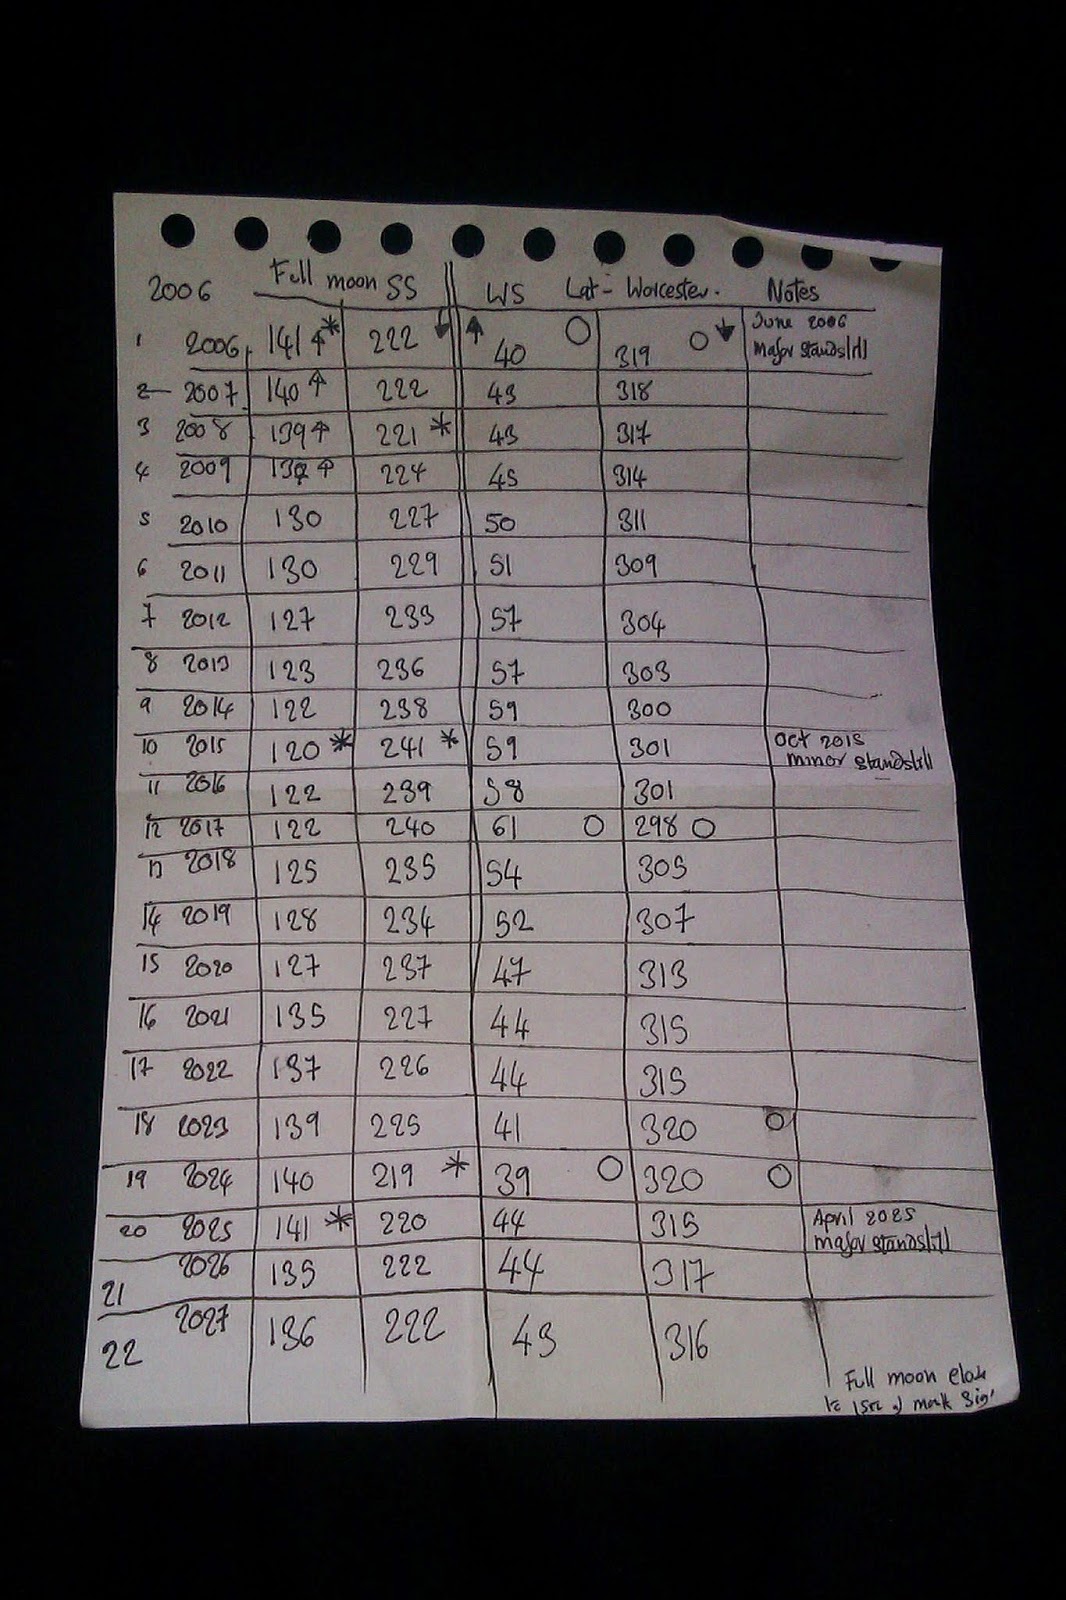 2006 Full moon SS WS Lat - Worcester. Notes
1 2006 141 ↑ * 222 ↓ ↑ 40 O 319 O ↓ June 2006
major standstill
2 2007 140 ↑ 222 43 318
3 2008 139 ↑ 221 * 43 317
4 2009 132 ↑ 224 45 314
5 2010 130 227 50 311
6 2011 130 229 51 309
7 2012 127 233 57 304
8 2013 123 236 57 303
9 2014 122 238 59 300
10 2015 120 * 241 * 59 301 Oct 2015
minor standstill
11 2016 122 239 58 301
12 2017 122 240 61 O 298 O
13 2018 125 235 54 305
14 2019 128 234 52 307
15 2020 127 237 47 313
16 2021 135 227 44 315
17 2022 137 226 44 315
18 2023 139 225 41 320 O
19 2024 140 219 * 39 O 320 O
20 2025 141 * 220 44 315 April 2025
major standstill
21 2026 135 222 44 317
22 2027 136 222 43 316
Full moon